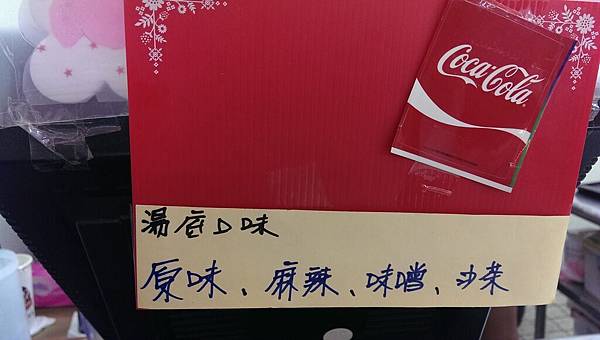 Coca-Cola
湯底口味
原味、麻辣、味噌、沙茶